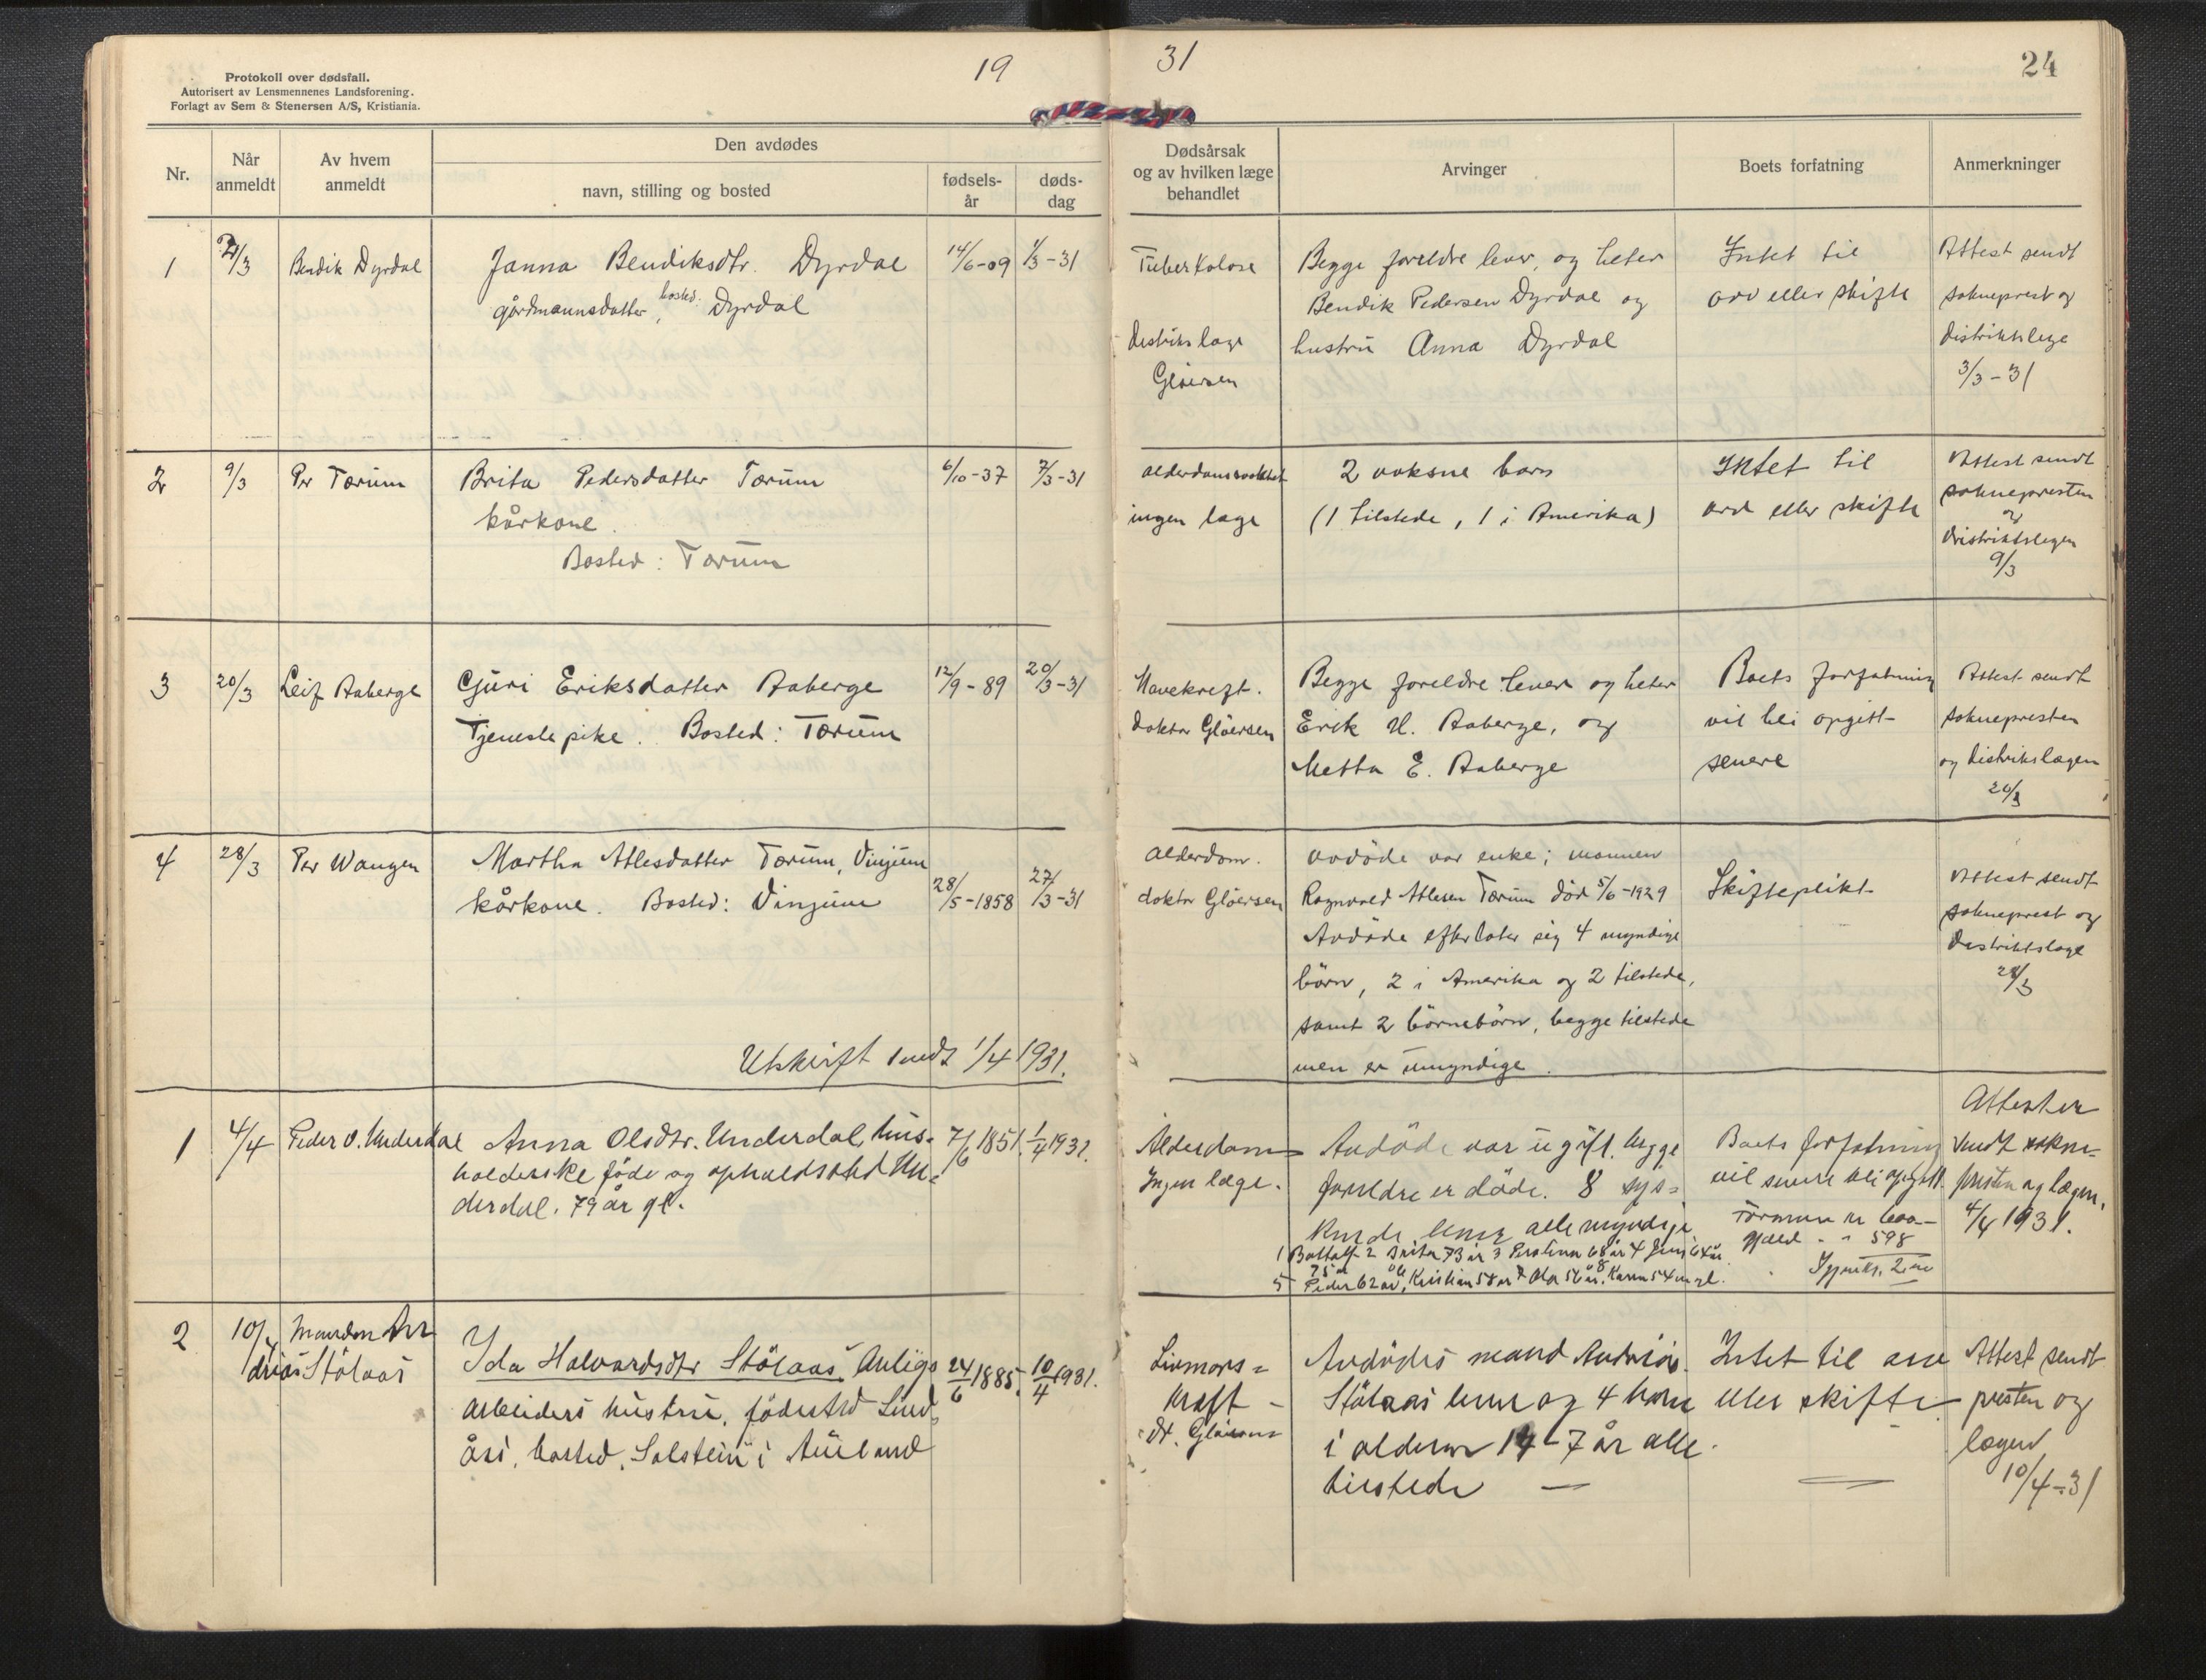 Protokoll over dødsfall.
Autorisert av Lensmennenes Landsforening.
Forlagt av Sem & Stenersen A/S, Kristiania.
19
31
24
Nr.
Når anmeldt
Av hvem anmeldt
Den avdødes
navn, stilling og bosted
fødsels-år
døds-dag
Dødsårsak og av hvilken læge behandlet
Arvinger
Boets forfatning
Anmerkninger
1
2/3
Bendik Dyrdal
Janna Bendiksdtr. Dyrdal
gårdmannsdatter, bosted: Dyrdal
14/6-09
1/3-31
Tuberkolose
distrikslæge
Gløersen
Begge foreldre lever, og heter
Bendik Pedersen Dyrdal og
hustru Anna Dyrdal
Intet til
arv eller skifte
Attest sendt
sokneprest og
distriktslege
3/3-31
2
9/3
Per Tørum
Brita Pedersdatter Tørum
kårkone.
Bosted: Tørum
6/10-37
7/3-31
ingen læge
2 voksne barn
(1 tilstede, 1 i Amerika)
Intet til
arv eller skifte
Attest sendt
soknepresten
og
distriktslegen
9/3
3
20/3
Leif Aaberge
Guri Eriksdatter Aaberge
Tjenestepike. Bosted: Tørum
12/9-89
20/3-31
Mavekreft.
doktor Gløersen
Begge foreldre lever og heter
Erik H. Aaberge, og
Metta E. Aaberge
Boets forfatning
vil bli opgitt
senere
Attest sendt
soknepresten
og distrikslægen
20/3
4
28/3
Per Wangen
Martha Atlesdatter Tørum, Vinjum
kårkone. Bosted: Vinjum
28/5-1858
27/3-31
Alderdom.
doktor Gløersen
avdøde var enke; mannen
Ragnvald Atlesen Tørum død 5/6-1929
Avdøde efterlater sig 4 myndige
børn, 2 i Amerika og 2 tilstede,
samt 2 børnebørn, begge tilstede
men er umyndige.
Skifteplikt
Attest sendt
sokneprest og
distriktslæge
28/3
Utskrift sendt 1/4 1931.
1
4/4
Peder O. Underdal
Anna Olsdtr. Underdal, hus-
holderske føde og opholdssted Un-
derdal. 79 år gl.
7/6 1851.
1/4 1931.
Alderdom
Ingen læge.
Avdøde var ugift. begge
foreldre er døde. 8 sys-
kende lever alle myndige
2 Brita 73 år 3
5 Peder 62 år, Kristian 58 år 7 Ola 56 år. 8 Karen 54 år gl.
Boets forfatning
vil senere bli opgitt
Formue kr
gjeld " " 598
Attester
sendt sokne-
presten og lægen.
4/4 1931.
2
10/4
Manden An-
dreas Stølaas
Ida Halvardsdtr Stølaas, Anlegs
arbeiders hustru, fødested Lind-
ås, bosted, Solstein i Aurland
24/6 1885.
10/4 1931.
Livmors-
kreft -
dr. Gløersen
Avdødes mand Andreas
Stølaas lever og 4 barn
i alderen 14-7 år alle
tilstede —
Intet til arv
eller skifte
Attest sendt
presten og
lægen
10/4-31